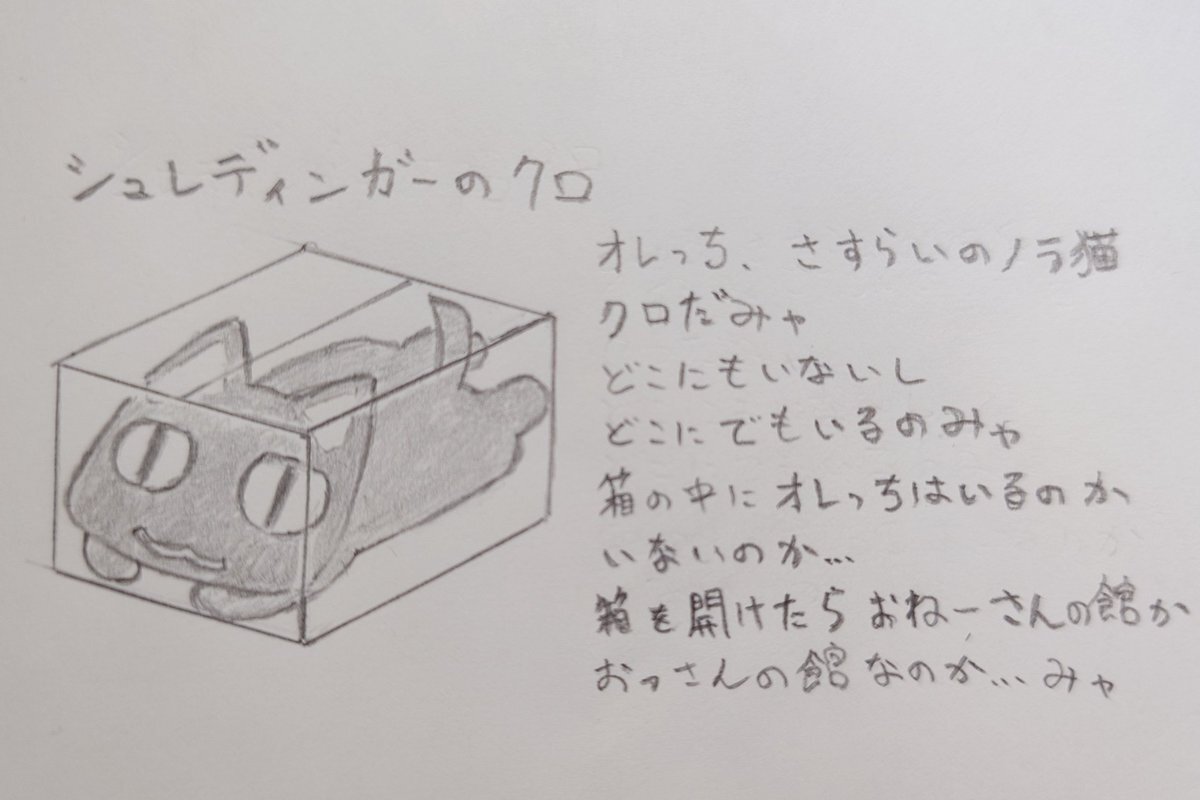 シュレディンガーのクロ
オレっち、さすらいのノラ猫
クロだみャ
どこにもいないし
どこにでもいるのみャ
箱の中にオレっちはいるのか
いないのか…
箱を開けたらおねーさんの館か
おっさんの館なのか…みャ